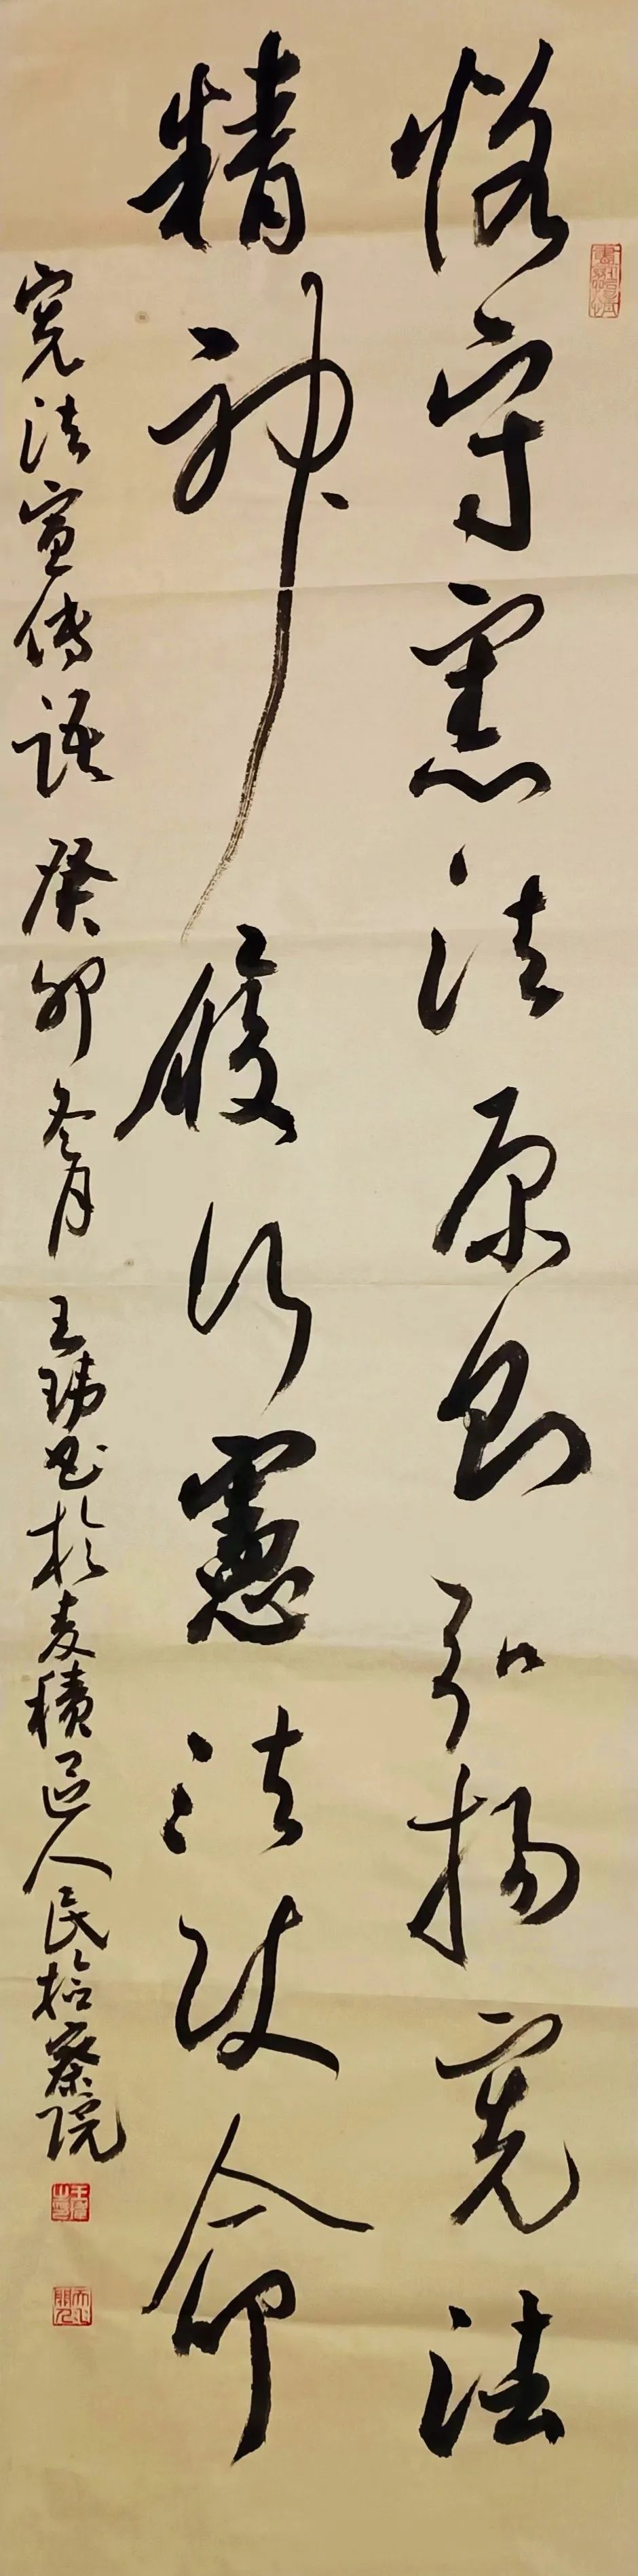 恪守憲法原则弘扬宪法
精神履行憲法使命
宪法宣传语 癸卯冬月 王玮书於麦积区人民检察院